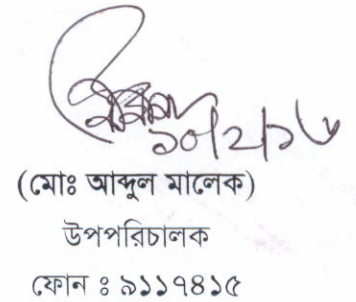 ১০/২/১৬
(মোঃ আব্দুল মালেক)
উপপরিচালক
ফোন ঃ ৯১১৭৪১৫